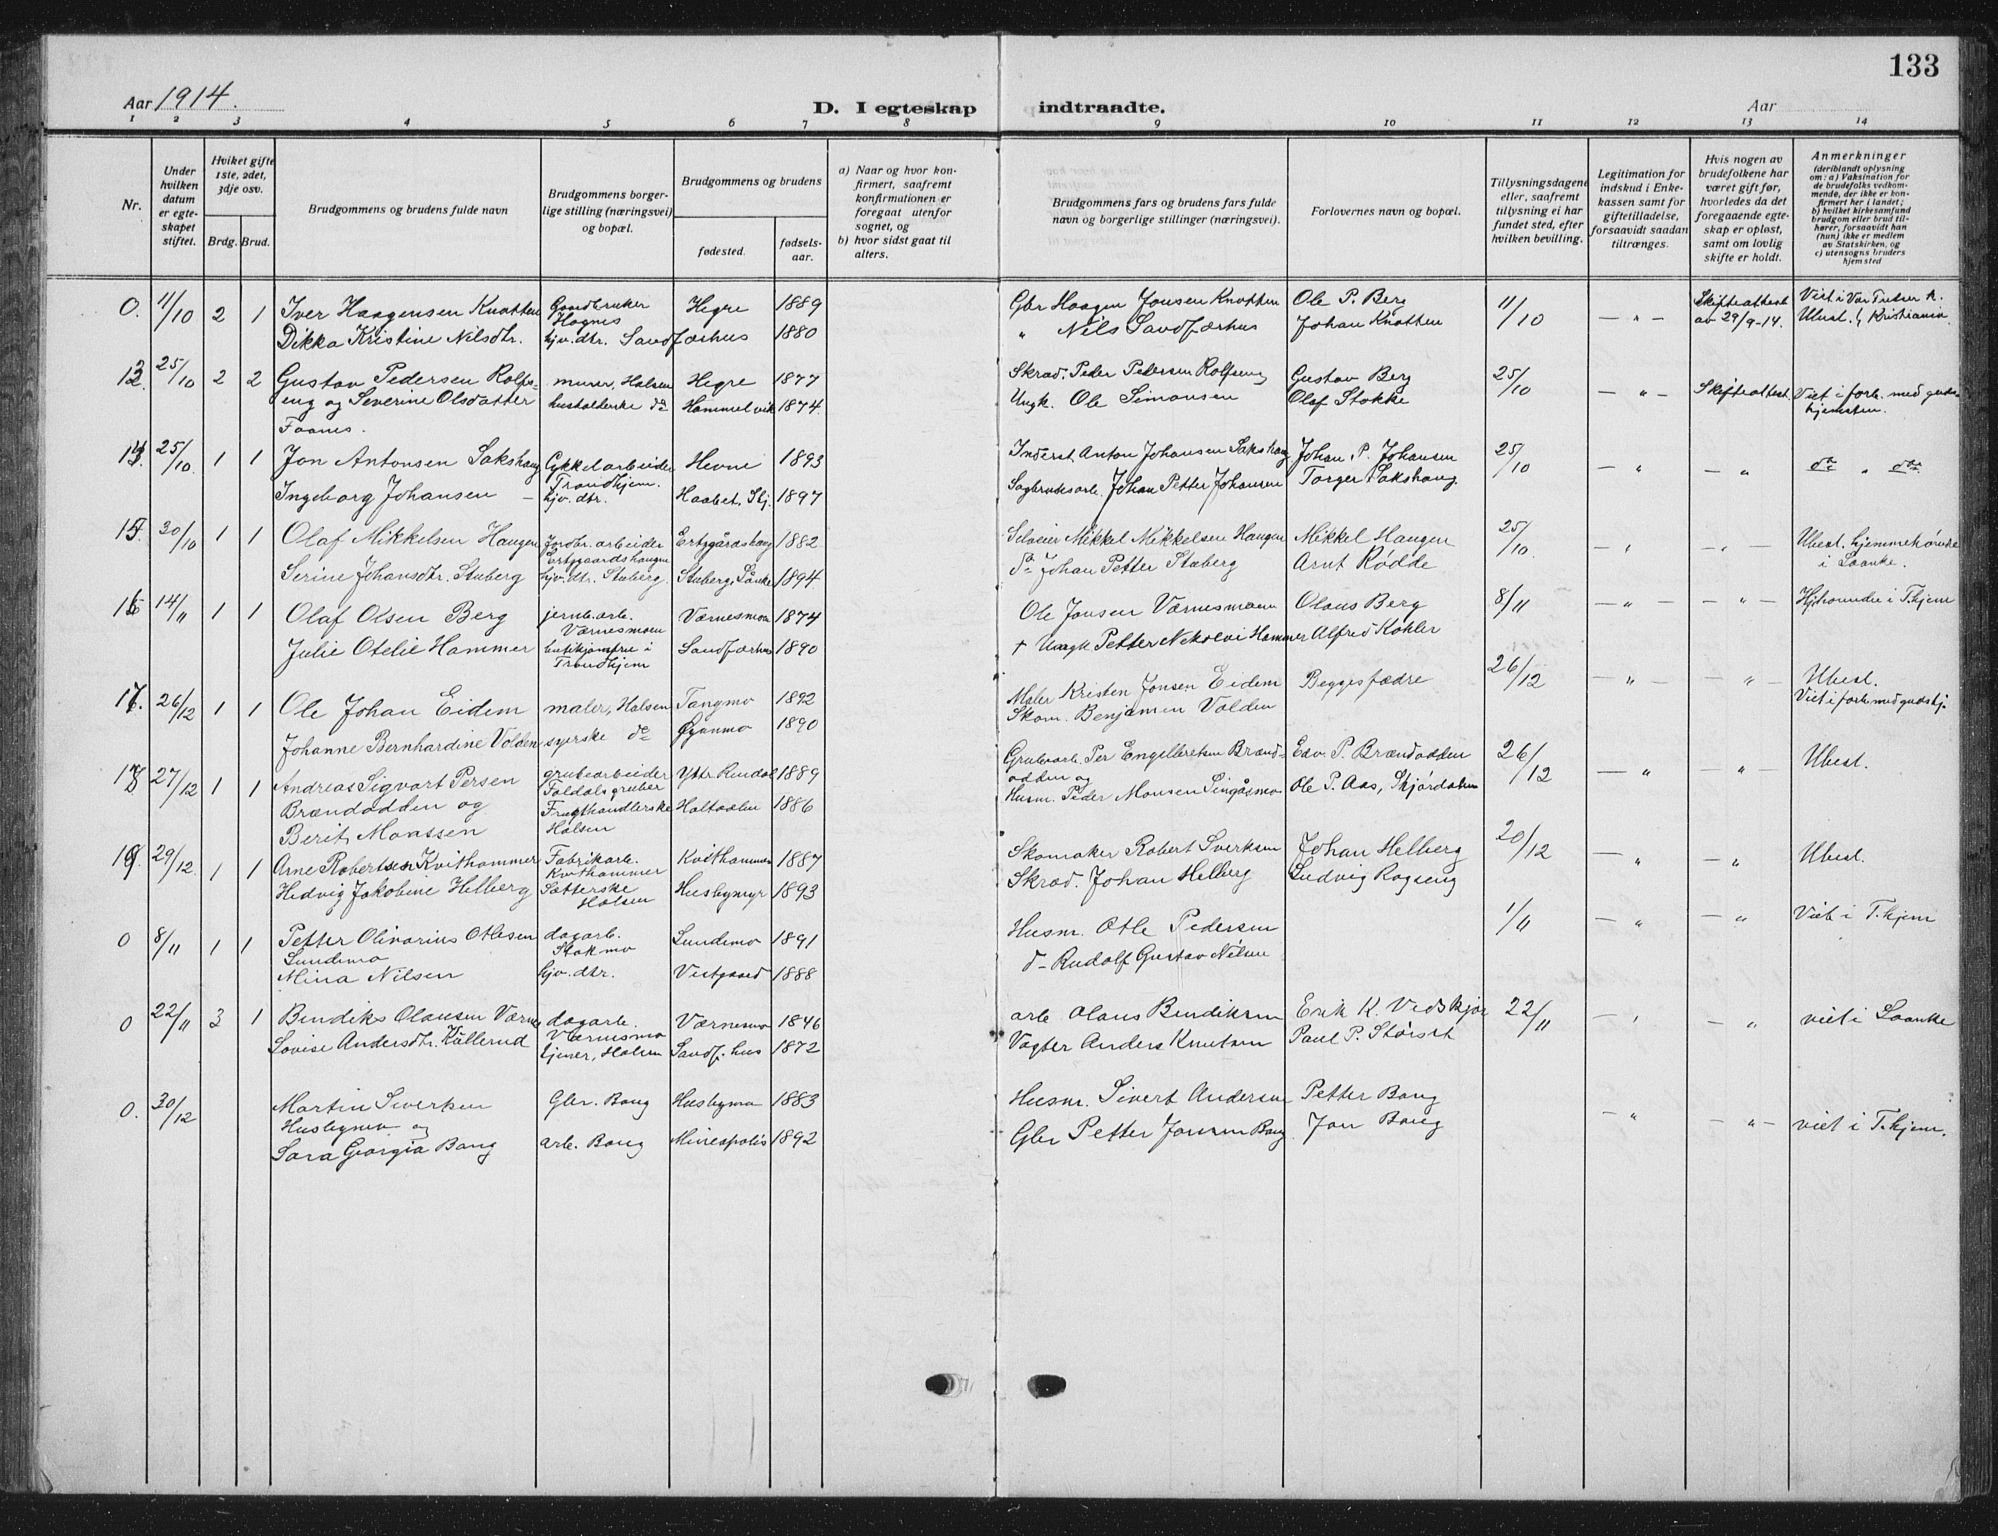 133
Aar 1914.
D. I egteskap indtraadte.
Aar
1 2 3 4 5 6 7 8 9 10 11 12 13 14
Nr.
Under hvilken datum er egteskapet stiftet.
Hviket gifte 1ste, 2det, 3dje osv.
Brdg. Brud.
Brudgommens og brudens fulde navn
Brudgommens borgerlige stilling (næringsvei) og bopæl.
Brudgommens og brudens
fødested.
fødselsaar.
a) Naar og hvor konfirmert, saafremt konfirmationen er foregaat utenfor sognet, og
b) hvor sidst gaat til alters.
Brudgommens fars og brudens fars fulde navn og borgerlige stillinger (næringsvei).
Forlovernes navn og bopæl.
Tillysningsdagene eller, saafremt tillysning ei har fundet sted, efter hvilken bevilling.
Legitimation for indskud i Enkekassen samt for giftetilladelse, forsaavidt saadan tiltrænges.
Hvis nogen av brudefolkene har været gift før, hvorledes da det foregaaende egteskap er opløst, samt om lovlig skifte er holdt.
Anmerkninger (deriblandt oplysning om: a) Vaksination for de brudefolks vedkommende, der ikke er konfirmert her i landet; b) hvilket kirkesamfund brudgom eller brud tilhører, forsaavidt han (hun) ikke er medlem av Statskirken, og c) utensogns bruders hjemsted
0. 11/10 2 1 Iver Haagensen Knotten Gaardbruker Hognes Hegre 1889 Gbr Haagen Jonsen Knotten Ole P. Berg 11/10 — " — Skifteattest av 29/9-14. Viet i Vor Frelser k. Ubest. i Kristiania
Dikka Kristine Nilsdtr. hjv. dtr. Sandfærhus 1880 " Nils Sandfærhus Johan Knotten
13. 25/10 2 2 Gustav Pedersen Rolfs- murer, Halsen Hegre 1877 Skræd. Peder Pedersen Rolfseng Gustav Berg 25/10 — " — Skifteattest Viet i forb. med guds-
eng og Severine Olsdatter husholderske do Hommelvik 1874 Ungk. Ole Simonsen Olaf Stokke tjensten.
Faanes.
14. 25/10. 1 1 Jon Antonsen Sakshaug Cykkelarbeider Trondhjem. Hevne 1893 Inderst. Anton Johansen Sakshaug Johan P. Johansen 25/10 — " — " do " do
Ingeborg Johansen — hjv. dtr. Haabet, Stj. 1897 Sagbruksarb. Johan Petter Johansen Torger Sakshaug
15. 30/10 1 1 Olaf Mikkelsen Haugen Jordbr. arbeider Ertzgaardshaugen Ertzgårdshaug 1882 Selveier Mikkel Mikkelsen Haugen Mikkel Haugen 25/10. — " — " — Ubest. hjemmehørende
Serine Johansdtr. Stuberg hjv. dtr. Stuberg. Stuberg, Lånke 1894 do Johan Petter Stuberg Arnt Rødde i Laanke.
16 14/11 1 1 Olaf Olsen Berg jernb. arb. Værnesmoen Værnesmoen 1874 Ole Jonsen Værnesmoen Olaus Berg 8/11 — " — — " — Hjhørende i T.hjem
Julie Otelie Hammer butikjomfru i Trondhjem Sandfærhus 1890 + Ungk Petter Nikolai Hammer Alfred Köhler
17. 26/12 1 1 Ole Johan Eidem maler, Halsen Tangmo 1892 Maler Kristen Jonsen Eidem Begges fædre 26/12 — " — — " — Ubest.
Johanne Bernhardine Volden syerske do Øyanmo 1890 Skom. Benjamen Volden Viet i forb. med gudstj.
18 27/12 1 1 Andreas Sigvart Persen grubearbeider Foldals gruber Yttr. Rendal 1889 Grubearb. Per Engelbretsen Brænd- Edv. P. Brændodden 26/12 — " — — " — Ubest.
Brændodden og Frugthandlerske Halsen Holtaalen 1886 odden og
Berit Monssen Husm. Peder Monsen Singåsmo Ole P. Aas, Skjørdalen
19. 29/12. 1 1 Arne Robertsen Kvithammer Fabrikarb. Kvithammer Kvithammer 1887 Skomaker Robert Sverksen Johan Helberg 20/12 — " — — " Ubest.
Hedvig Jakobine Helberg Sætterske Halsen Husbymyr 1893 Skræd. Johan Helberg Ludvig Rogseng
0 8/11 1 1 Petter Olivarius Otlesen dagarb. Stokmo Sundemo 1891 Husm. Otle Pedersen 1/11 — " — " Viet i T.hjem
Sundemo
Mina Nilsen hjv. dtr. Vestgaard 1888 d— Rudolf Gustav Nilsen
0 22/11 3 1 Bendiks Olausen Værne dagarb. Værnesmo Værnesmo 1846 arb Olaus Bendiksen Erik K. Vedskjør 22/11 — " — " viet i Laanke
Lovise Andersdtr. Kullerud tjener, Halsen Sandf.hus 1872 Vogter Anders Knutsen Paul P. Størset
0. 30/12 Martin Sverksen Gbr. Bang Husbymo 1883 Husm. Sivert Andersen Petter Bang — " — " — viet i T.hjem.
Husbymo og
Sara Georgia Bang arb. Bang Mineapolis 1892 Gbr Petter Jonsen Bang Jon Bang